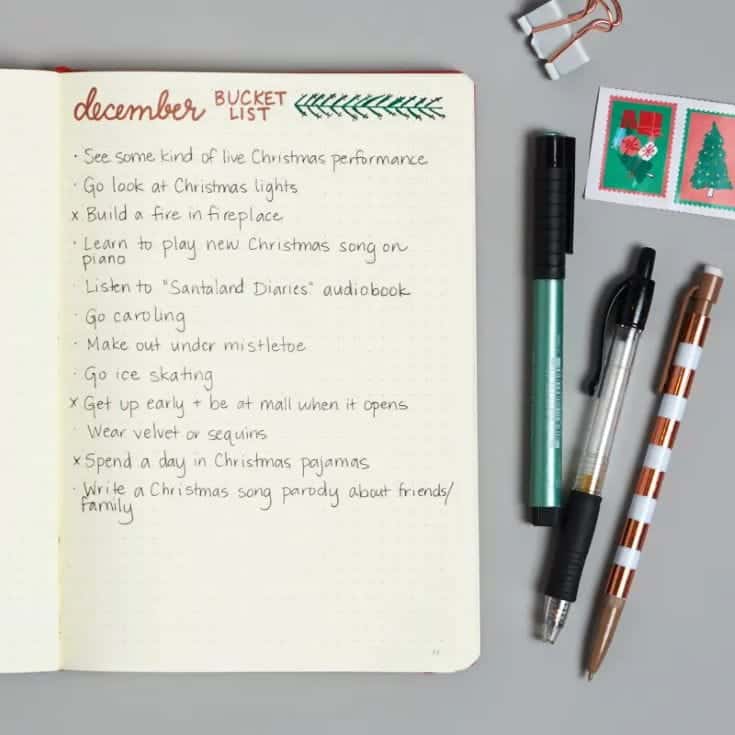 december BUCKET LIST
· See some kind of live Christmas performance
· Go look at Christmas lights
x Build a fire in fireplace
· Learn to play new Christmas song on
piano
· Listen to "Santaland Diaries" audiobook
· Go caroling
· Make out under mistletoe
· Go ice skating
x Get up early + be at mall when it opens
· Wear velvet or sequins
x Spend a day in Christmas pajamas
· Write a Christmas song parody about friends/
family